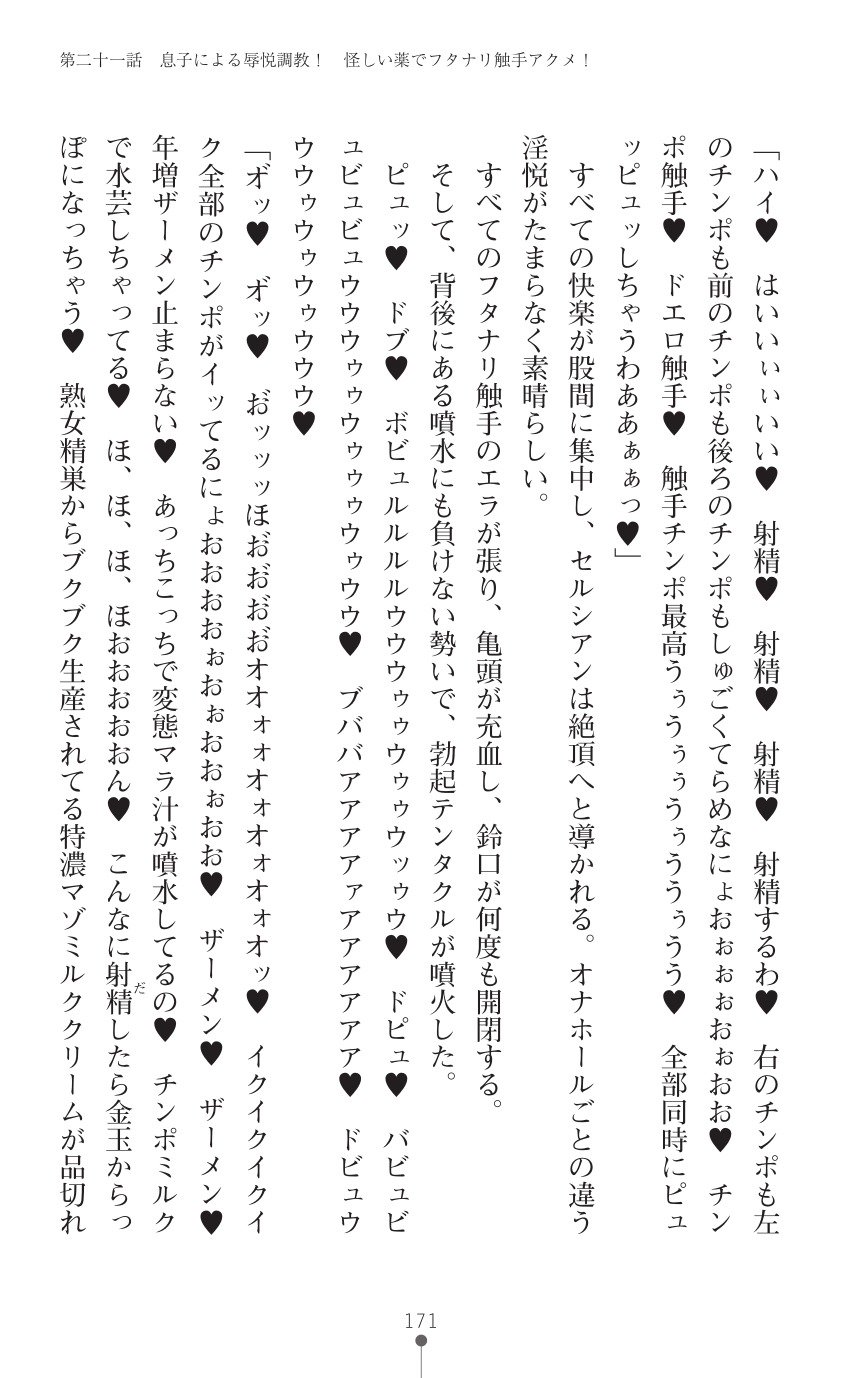 第二十一話　息子による辱悦調教！　怪しい薬でフタナリ触手アクメ！
「ハイ♥　はいいぃぃいい♥　射精♥　射精♥　射精♥　射精するわ♥　右のチンポも左
のチンポも前のチンポも後ろのチンポもしゅごくてらめなにょおぉぉぉおぉおお♥　チン
ポ触手♥　ドエロ触手♥　触手チンポ最高うぅうぅぅうぅううぅうう♥　全部同時にピュ
ッピュッしちゃうわああぁぁっ♥」
　すべての快楽が股間に集中し、セルシアンは絶頂へと導かれる。オナホールごとの違う
淫悦がたまらなく素晴らしい。
　すべてのフタナリ触手のエラが張り、亀頭が充血し、鈴口が何度も開閉する。
　そして、背後にある噴水にも負けない勢いで、勃起テンタクルが噴火した。
　ピュッ♥　ドブ♥　ボビュルルルルウウウゥゥウゥゥウッゥウ♥　ドピュ♥　バビュビ
ュビュビュウウウゥゥウゥゥゥウゥウウ♥　ブババアアアアァアアアアアア♥　ドビュウ
ウウゥウゥウゥウウウ♥
「オ゛ッ♥　オ゛ッ♥　お゛ッッッほお゛お゛お゛お゛オオォォオォオォオォオッ♥　イクイクイクイ
ク全部のチンポがイッてるにょおおおおぉおぉおおぉおお♥　ザーメン♥　ザーメン♥
年増ザーメン止まらない♥　あっちこっちで変態マラ汁が噴水してるの♥　チンポミルク
で水芸しちゃってる♥　ほ、ほ、ほ、ほおおおおおん♥　こんなに射精だしたら金玉からっ
ぽになっちゃう♥　熟女精巣からブクブク生産されてる特濃マゾミルククリームが品切れ
171